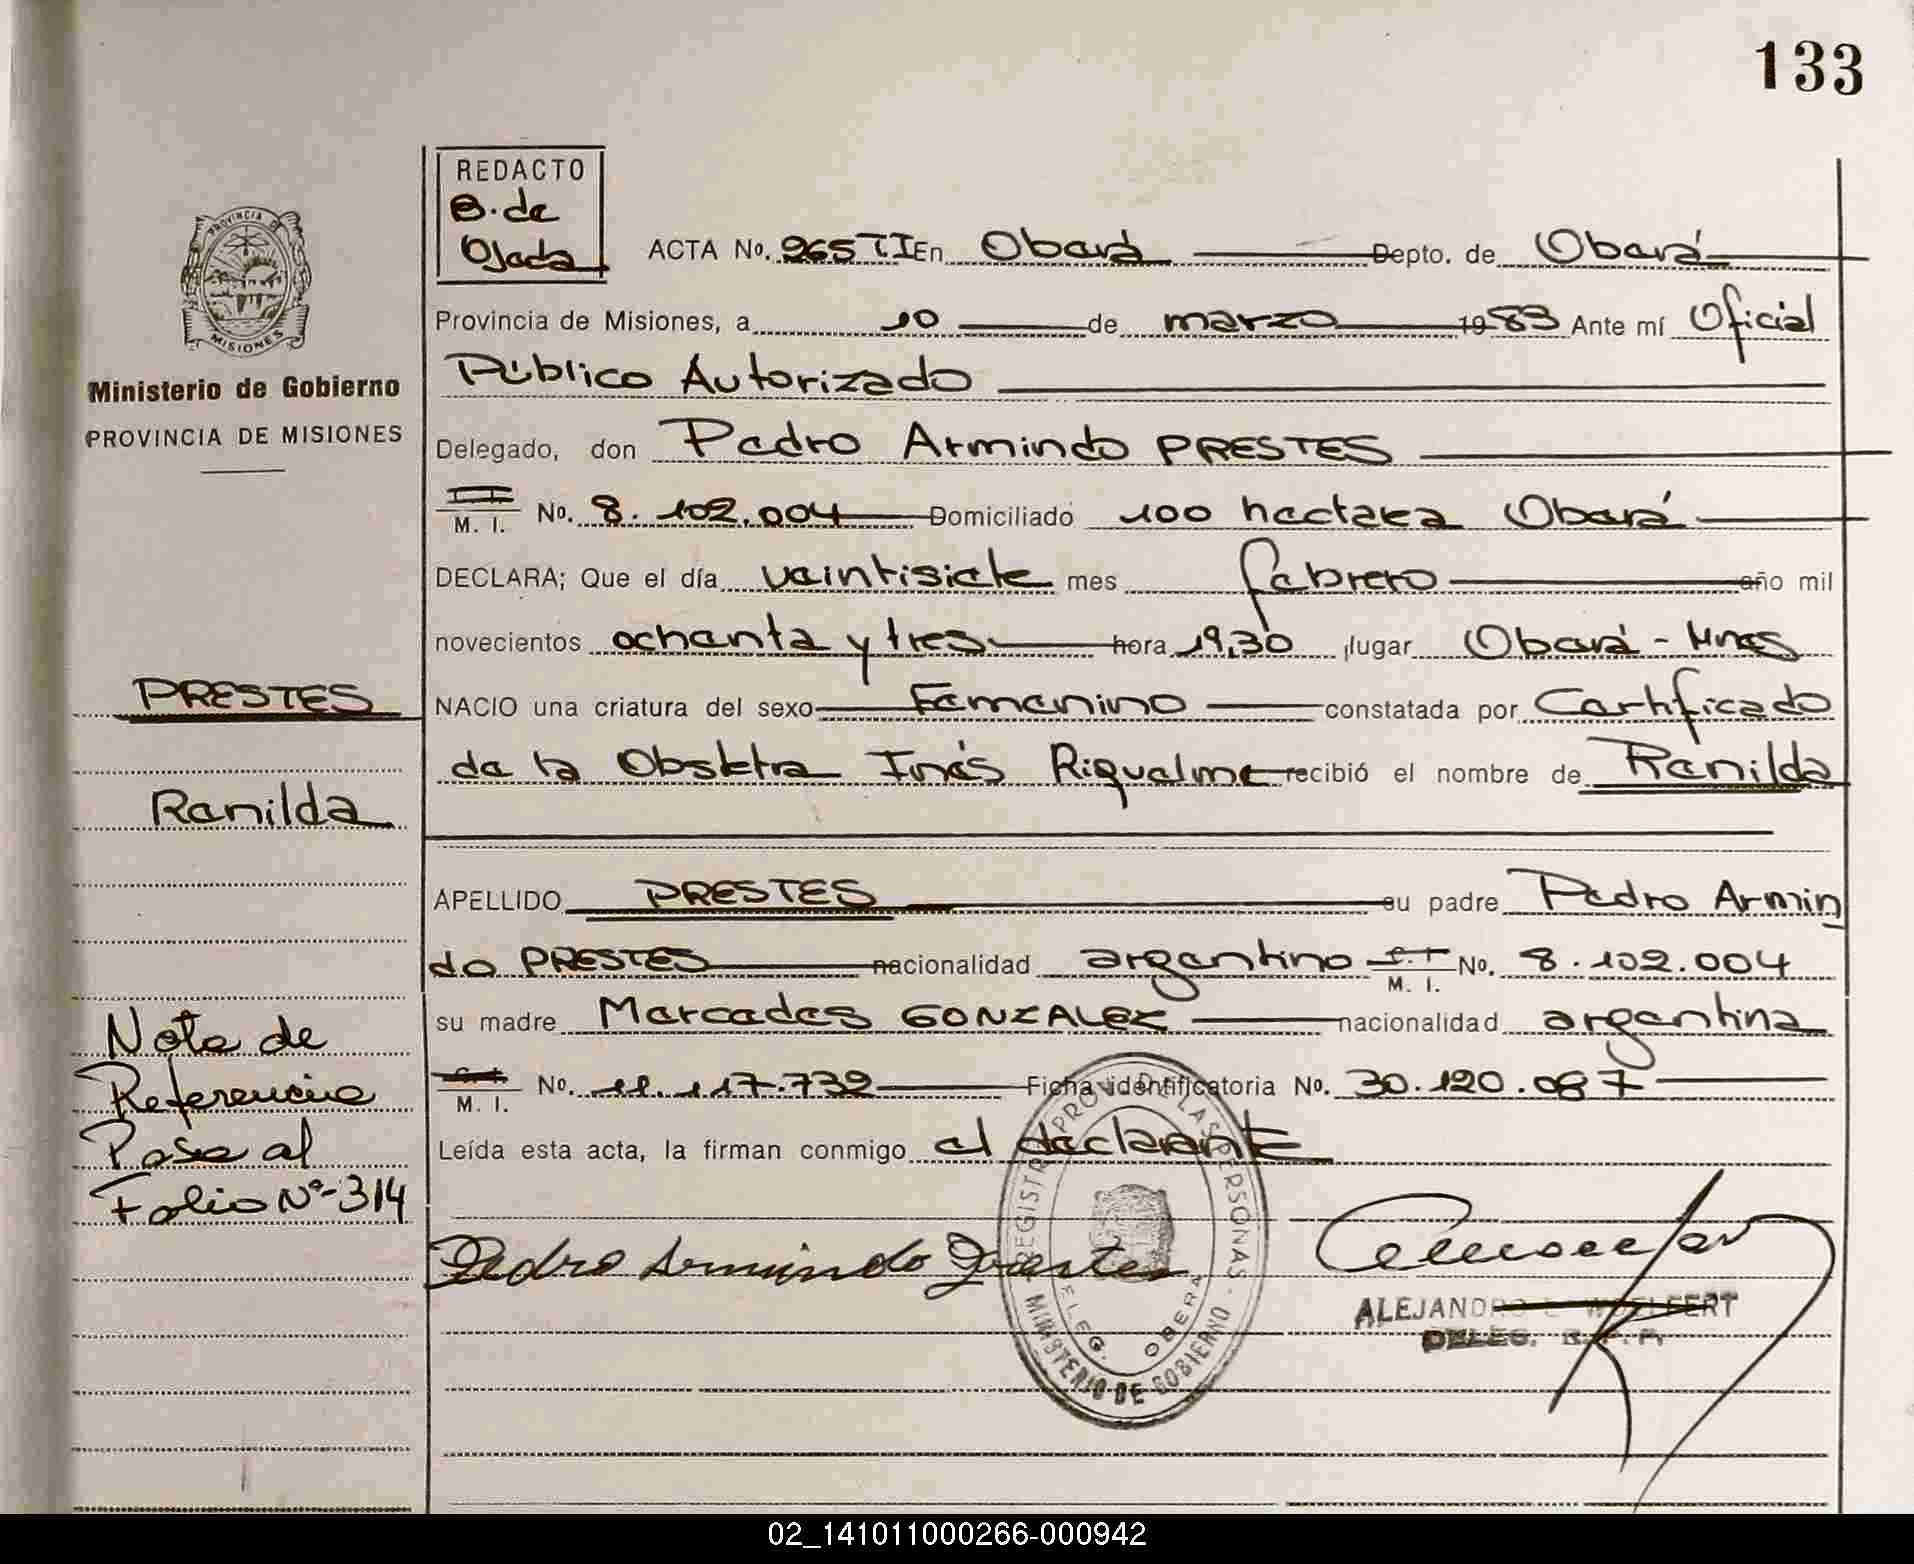 133
REDACTO
B. de
Ojeda
ACTA No. 965 TI En Oberá Depto. de Oberá
Provincia de Misiones, a 10 de marzo 1983 Ante mí Oficial
Público Autorizado
Delegado, don Pedro Armindo PRESTES
M. I. No. 8.102.004 Domiciliado 100 hectarea Oberá
DECLARA; Que el día veintisiete mes febrero año mil
novecientos ochenta y tres hora 19,30 ,lugar Oberá - Mnes
NACIO una criatura del sexo Femenino constatada por Certificado
de la Obstetra Inés Riquelme recibió el nombre de Renilda
APELLIDO PRESTES su padre Pedro Armin
do PRESTES nacionalidad argentino M. I. No. 8.102.004
su madre Mercedes GONZALEZ nacionalidad argentina
M. I. No. 11.117.732 Ficha identificatoria No. 30.120.087
Leída esta acta, la firman conmigo el declarante
Pedro Armindo Prestes
ALEJANDRO WOELFERT
DELEG. R. P. P.
REGISTRO PROV. DE LAS PERSONAS - MINISTERIO DE GOBIERNO
DELEG. OBERA
PROVINCIA DE
MISIONES
Ministerio de Gobierno
PROVINCIA DE MISIONES
PRESTES
Renilda
Nota de
Referencia
Pasa al
Folio Nº-314
02_141011000266-000942